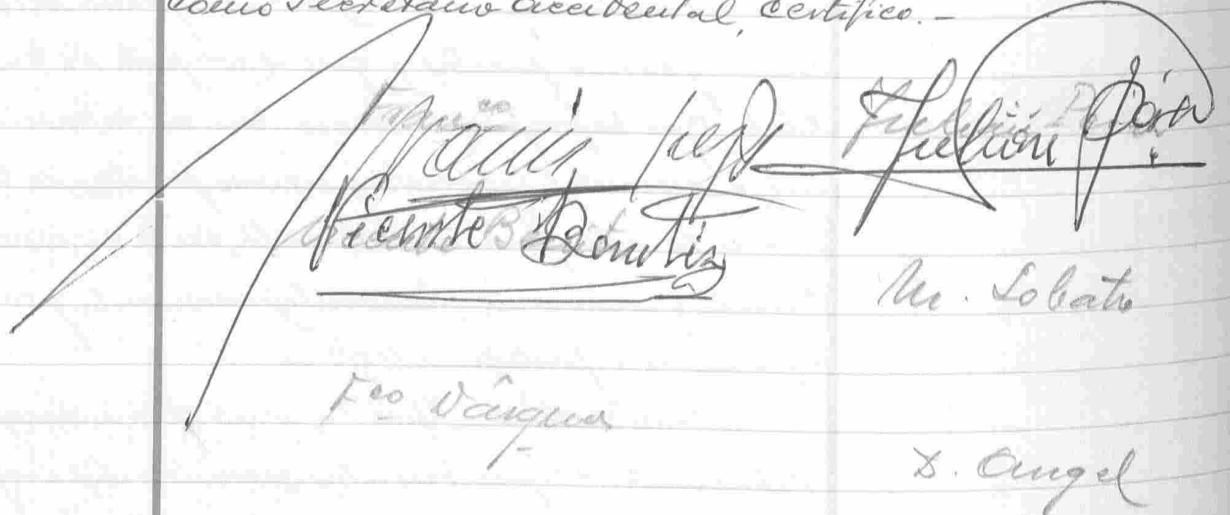 como Secretario accidental, certifico.-
Fco
Julián
Vicente Benitez
M. Lobato
Fco Vázquez
D. Angel